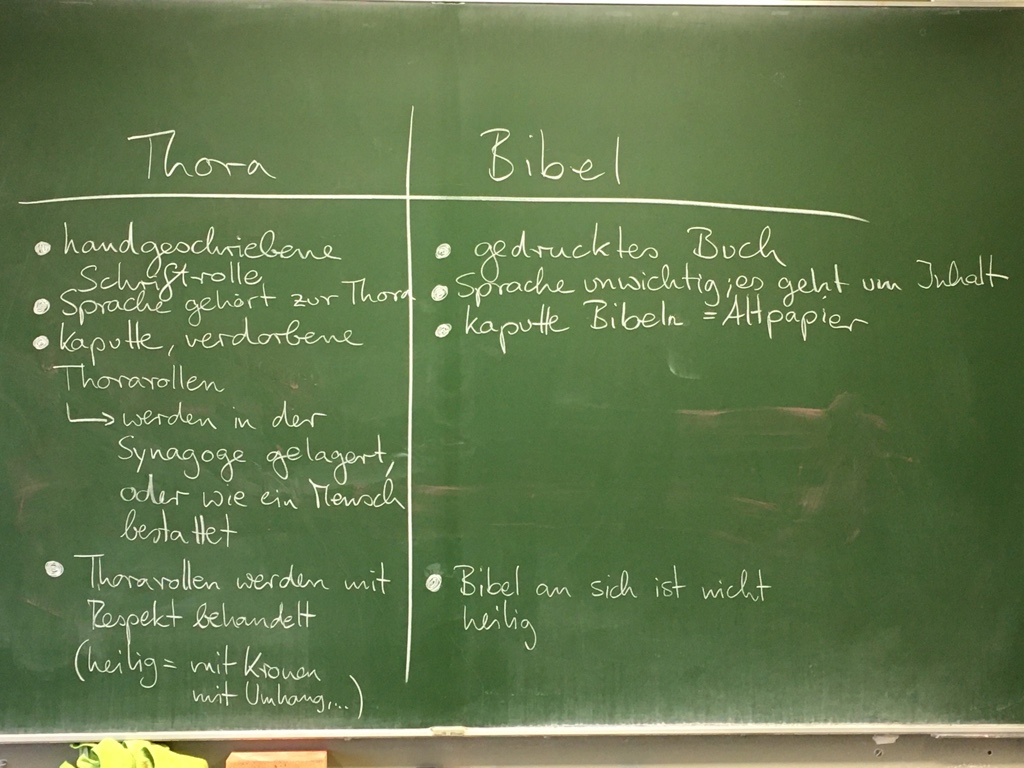 Thora
handgeschriebene
Schriftrolle
Sprache gehört zur Thora
kaputte, verdorbene
Thorarollen
werden in der
Synagoge gelagert,
oder wie ein Mensch
bestattet
Thorarollen werden mit
Respekt behandelt
(heilig = mit Kronen
mit Umhang,...)
Bibel
gedrucktes Buch
Sprache unwichtig; es geht um Inhalt
kaputte Bibeln = Altpapier
Bibel an sich ist nicht
heilig